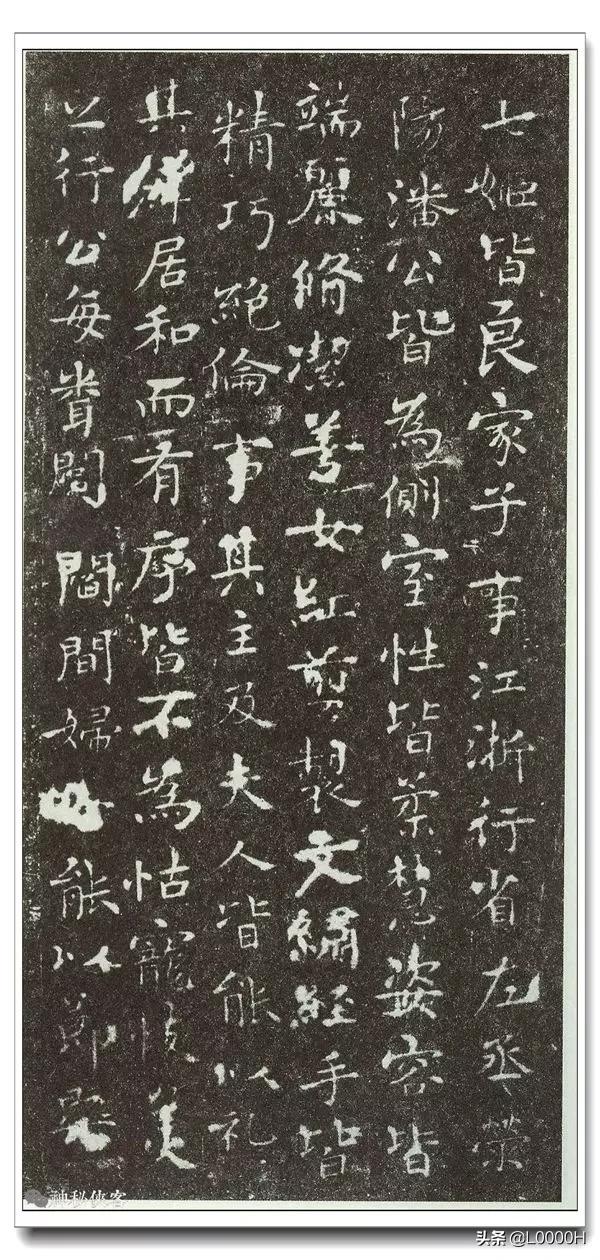 七姬皆良家子事江浙行省左丞荥
陽潘公皆為側室性皆柔慧姿容皆
端麗脩潔善女紅剪製文繡經手皆
精巧絕倫事其主及夫人皆能以礼
其羣居和而有序皆不為怙寵忮美
之行公每聞閭閻間婦能以節
神秘侠客
头条 @L0000H